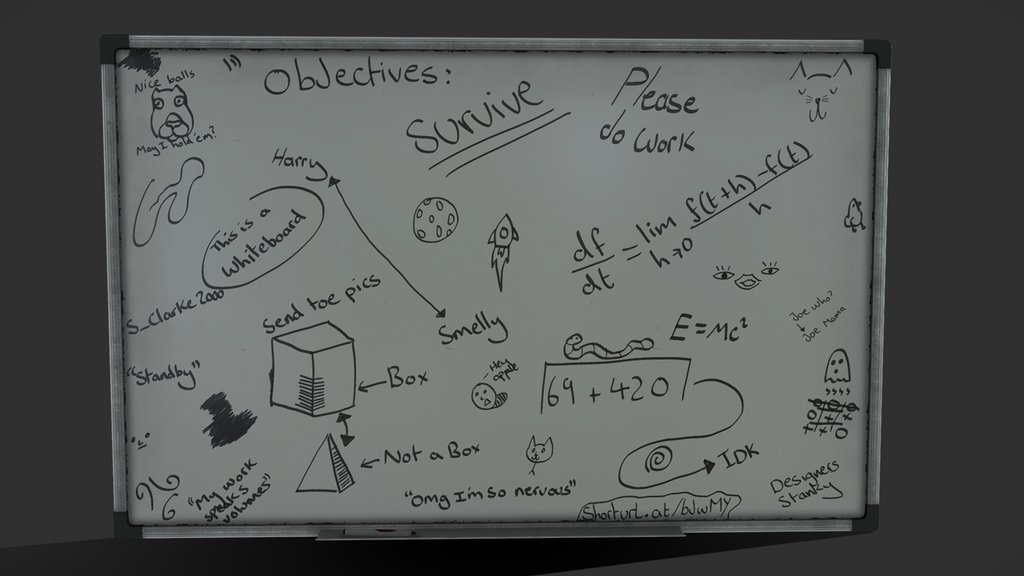 Nice balls
May I hold 'em?
Objectives:
Survive
Please
do work
Harry
This is a
Whiteboard
df/dt = lim h→0 f(t+h)-f(t)/h
S_Clarke2000
Send toe pics
Smelly
E=Mc²
Joe who?
Joe Mama
"Standby"
Box
- Hey
apple
69 + 420
Not a Box
IDK
"My work
speaks
volumes"
"Omg I'm so nervous"
Shorturl.at/bJwMY
Designers
Stanky